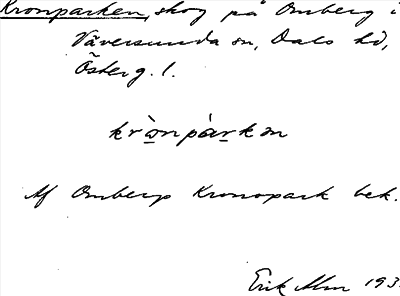 Kronparken, skog på Omberg i
Väversunda sn, Dals hd,
Österg. l.
krò̠npàr̠kən
Af Ombergs Kronopark bek.
Erik Alm 193